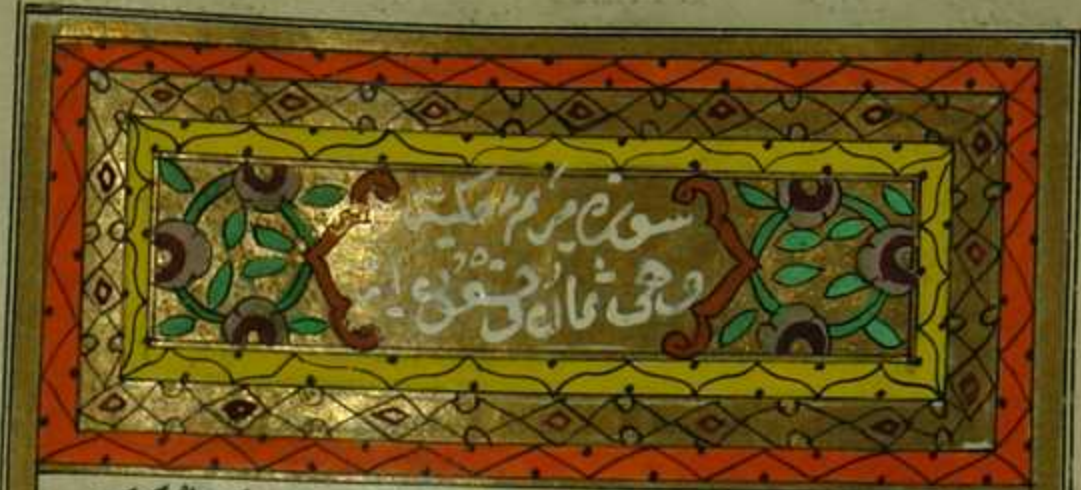 سورة مريم مكية
وهي ثمان وتسعون آية